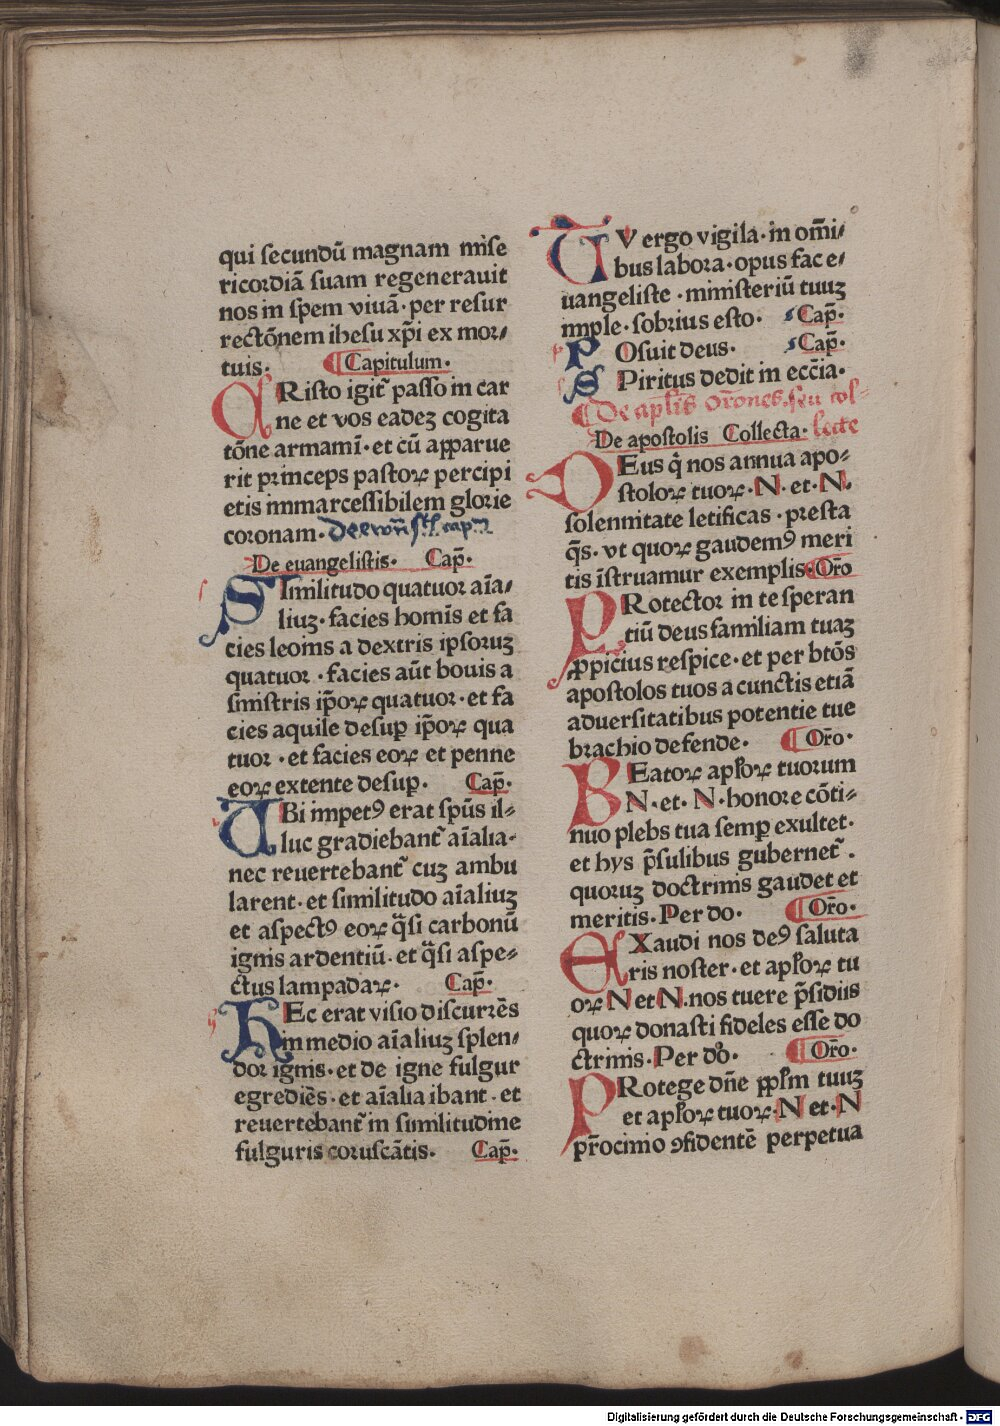 qui secundū magnam mise
ricordiā suam regenerauit
nos in spem viuā· per resur
rectōnem ihesu xp̄i ex mor⸗
tuis. ¶Capitulum·
CRisto igit᷑ passo in car
ne et vos eadeꝫ cogita
tōne armami᷑· et cū apparue
rit princeps pastoꝝ percipi
etis immarcessibilem glorie
coronam·
De euangelistis· Cap̄·
SImilitudo quatuor aīa⸗
liuꝫ· facies homīs et fa
cies leonis a dextris ipsoruꝫ
quatuor · facies aūt bouis a
sinistris ip̄oꝝ quatuor· et fa
cies aquile desuꝑ ip̄oꝝ qua
tuor · et facies eoꝝ et penne
eoꝝ extente desuꝑ. Cap̄·
VBi impetꝰ erat spūs il⸗
luc gradiebant᷑ aīalia·
nec reuertebant᷑ cuꝫ ambu
larent· et similitudo aīaliuꝫ
et aspectꝰ eoꝝ q̄si carbonū
ignis ardentiū· et q̄si aspe⸗
ctus lampadaꝝ· Cap̄·
HEc erat visio discurrēs
in medio aīaliuꝫ splen⸗
dor ignis· et de igne fulgur
egrediēs· et aīalia ibant· et
reuertebant᷑ in similitudine
fulguris coruscātis. Cap̄·
TV ergo vigila· in om̄i⸗
bus labora· opus fac e⸗
uangeliste · ministeriū tuuꝫ
imple· sobrius esto· Cap̄·
POsuit deus· Cap̄·
SPiritus dedit in ecc̄ia·
¶De apl̄is or̄ones· seu col⸗
lecte
De apostolis Collecta·
DEus q̄ nos annua apo⸗
stoloꝝ tuoꝝ· N· et· N·
solennitate letificas · presta
q̄s· vt quoꝝ gaudemꝰ meri
tis īstruamur exemplis· Or̄o
PRotector in te speran
tiū deus familiam tuaꝫ
ꝓpicius respice· et per btōs
apostolos tuos a cunctis etiā
aduersitatibus potentie tue
brachio defende· ¶Or̄o·
BEatoꝝ apl̄oꝝ tuorum
N· et· N· honore cōti⸗
nuo plebs tua semꝑ exultet·
et hys p̄sulibus gubernet᷑ ·
quoruꝫ doctrinis gaudet et
meritis· Per do· ¶Or̄o·
EXaudi nos deꝰ saluta
ris noster· et apl̄oꝝ tu
oꝝ N et N· nos tuere p̄sidiis
quoꝝ donasti fideles esse do
ctrinis· Per do· ¶Or̄o·
PRotege dn̄e ppl̄m tuuꝫ
et apl̄oꝝ tuoꝝ· N et· N
pr̄ocinio ꝯfidentē perpetua
Digitalisierung gefördert durch die Deutsche Forschungsgemeinschaft - DFG